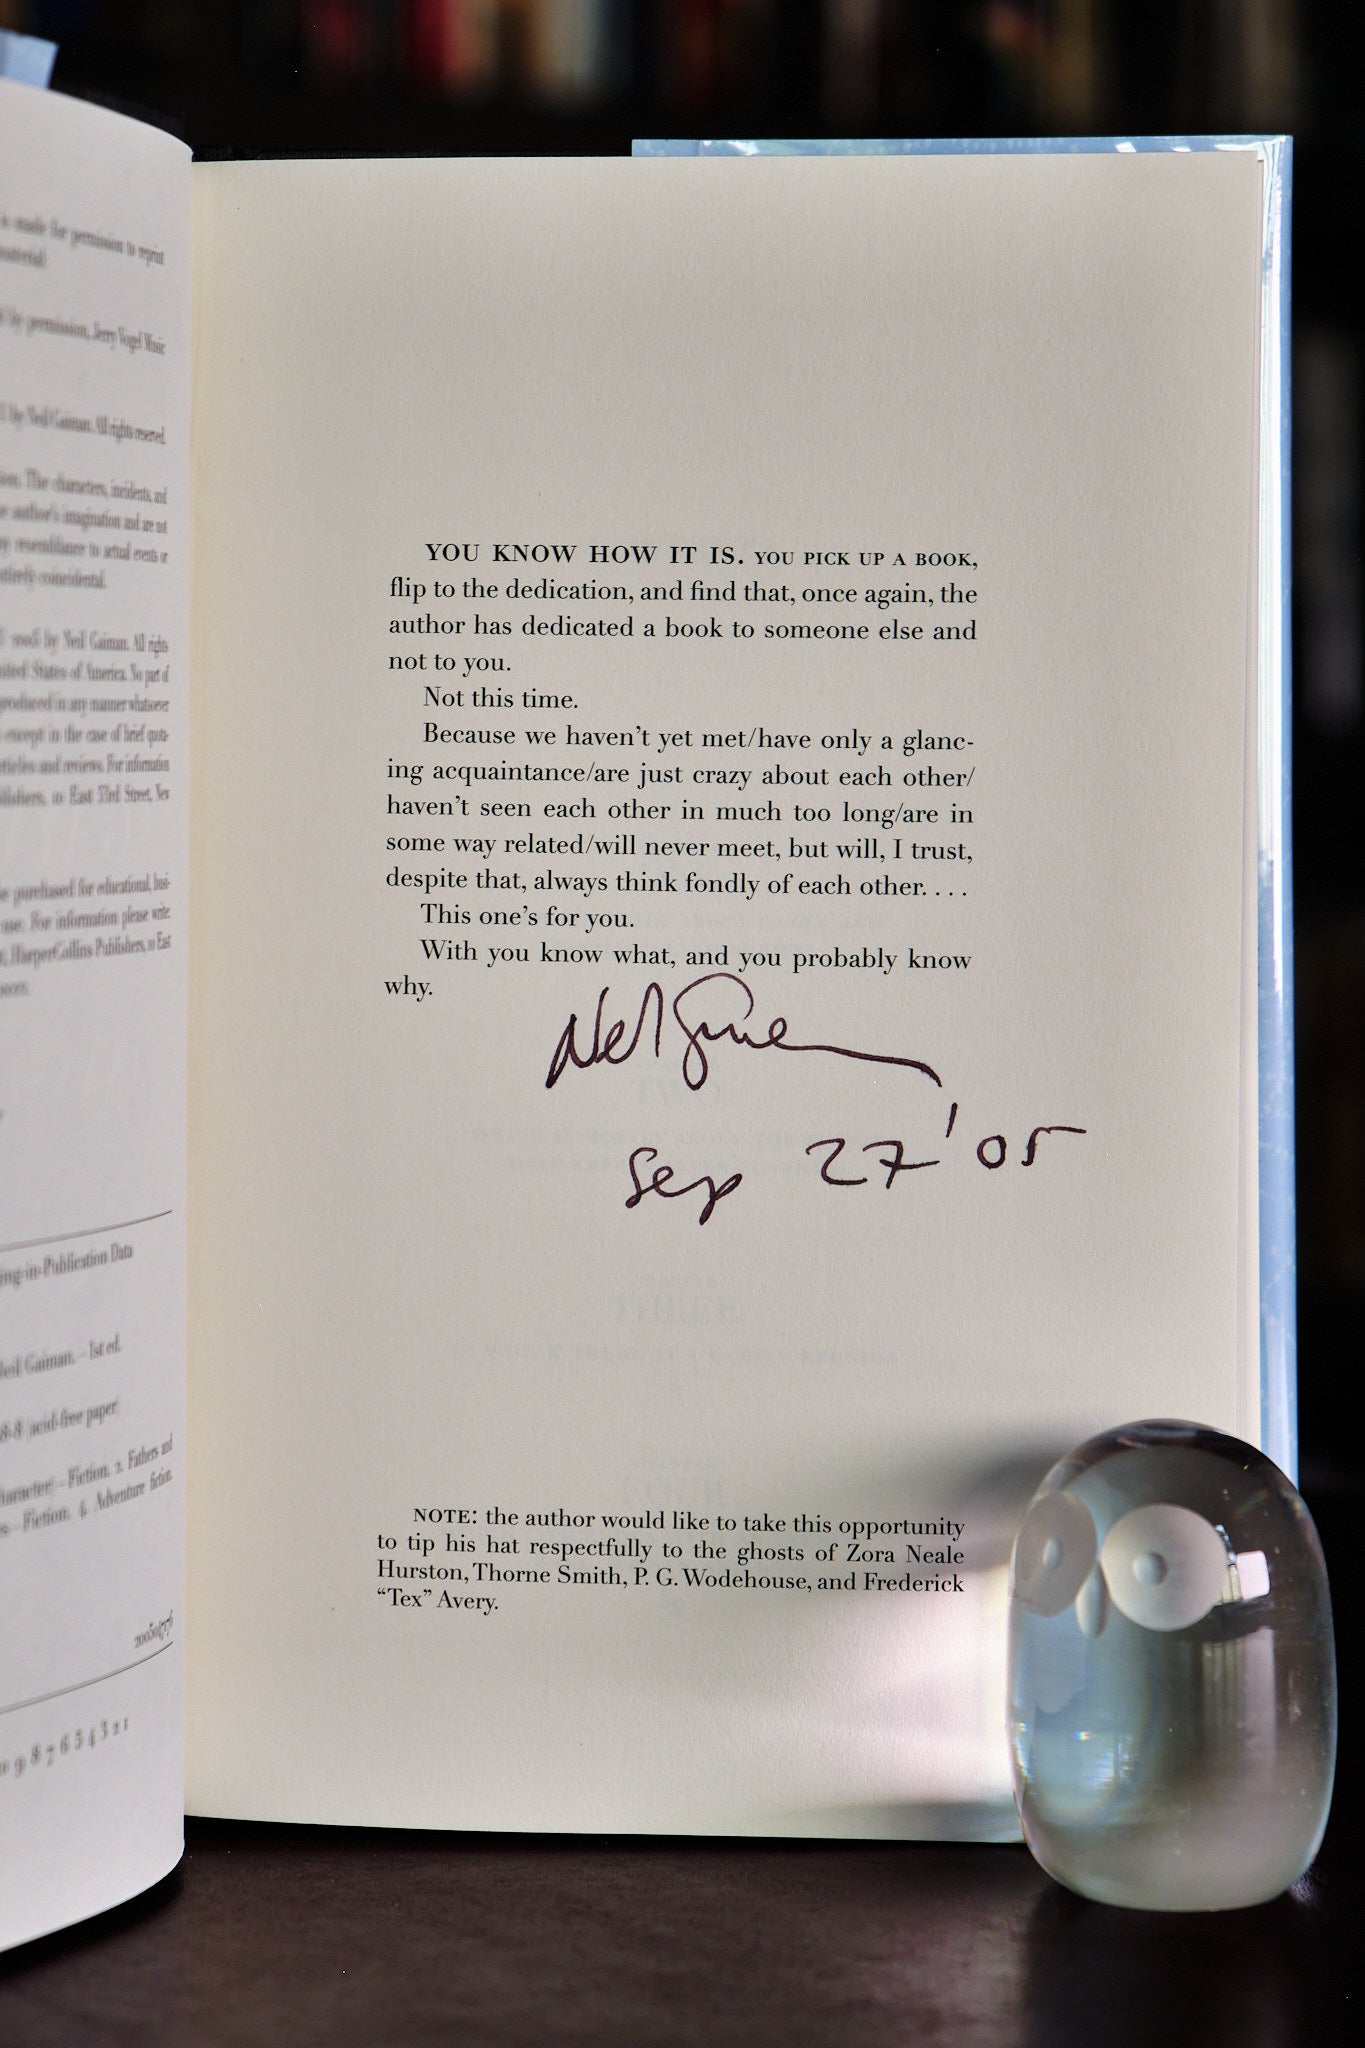 is made for permission to reprint
material:
by permission, Jerry Vogel Music
by Neil Gaiman. All rights reserved.
The characters, incidents, and
author's imagination and are not
resemblance to actual events or
entirely coincidental.
by Neil Gaiman. All rights
United States of America. No part of
produced in any manner whatsoever
except in the case of brief quota-
articles and reviews. For information
10 East 53rd Street, New
purchased for educational, busi-
use. For information please write
HarperCollins Publishers, 10 East
ing-in-Publication Data
Neil Gaiman. – 1st ed.
8-8 (acid-free paper)
– Fiction. 2. Fathers and
– Fiction. 4. Adventure fiction.
9 8 7 6 5 4 3 2 1
YOU KNOW HOW IT IS. YOU PICK UP A BOOK,
flip to the dedication, and find that, once again, the
author has dedicated a book to someone else and
not to you.
Not this time.
Because we haven't yet met/have only a glanc-
ing acquaintance/are just crazy about each other/
haven't seen each other in much too long/are in
some way related/will never meet, but will, I trust,
despite that, always think fondly of each other. . . .
This one's for you.
With you know what, and you probably know
why.
Neil Gaiman
Sep 27 '05
NOTE: the author would like to take this opportunity
to tip his hat respectfully to the ghosts of Zora Neale
Hurston, Thorne Smith, P. G. Wodehouse, and Frederick
“Tex” Avery.